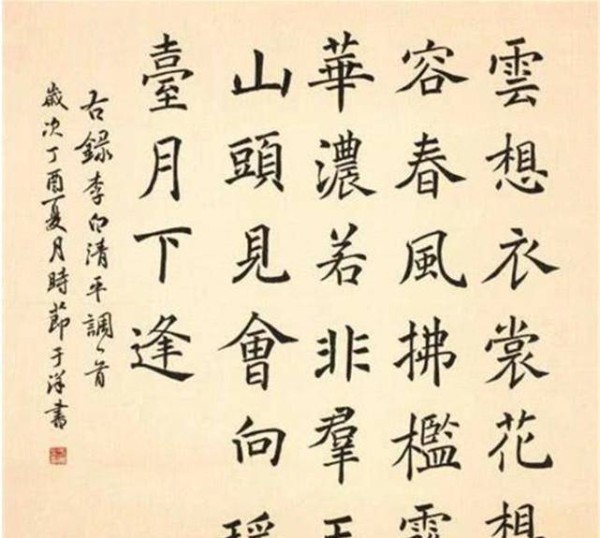 雲想衣裳花想
容春風拂檻露
華濃若非羣玉
山頭見會向瑤
臺月下逢
右錄李白清平調一首
歲次丁酉夏月時節于洋書